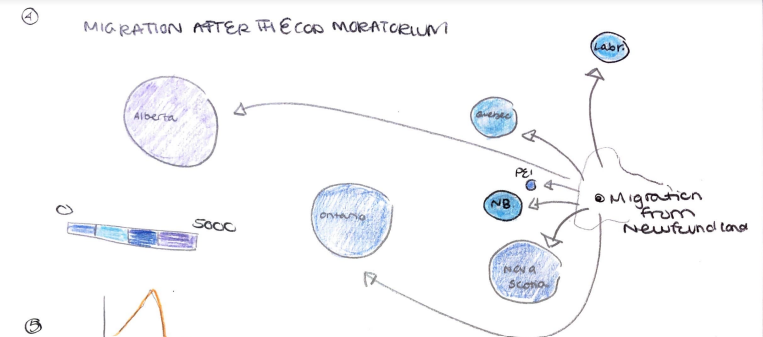 4
MIGRATION AFTER THE COD MORATORIUM
Labr.
Alberta
Quebec
PEI
NB
Migration
from
Newfoundland
0
5000
Ontario
Nova
Scotia
5